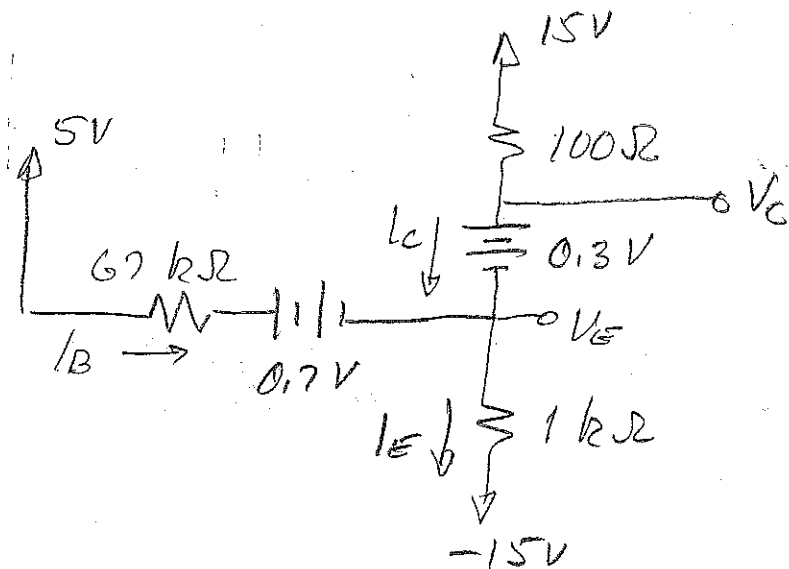 15V
5V
100Ω
V_C
I_C
0.3V
67 kΩ
V_E
I_B
0.7V
I_E
1 kΩ
-15V